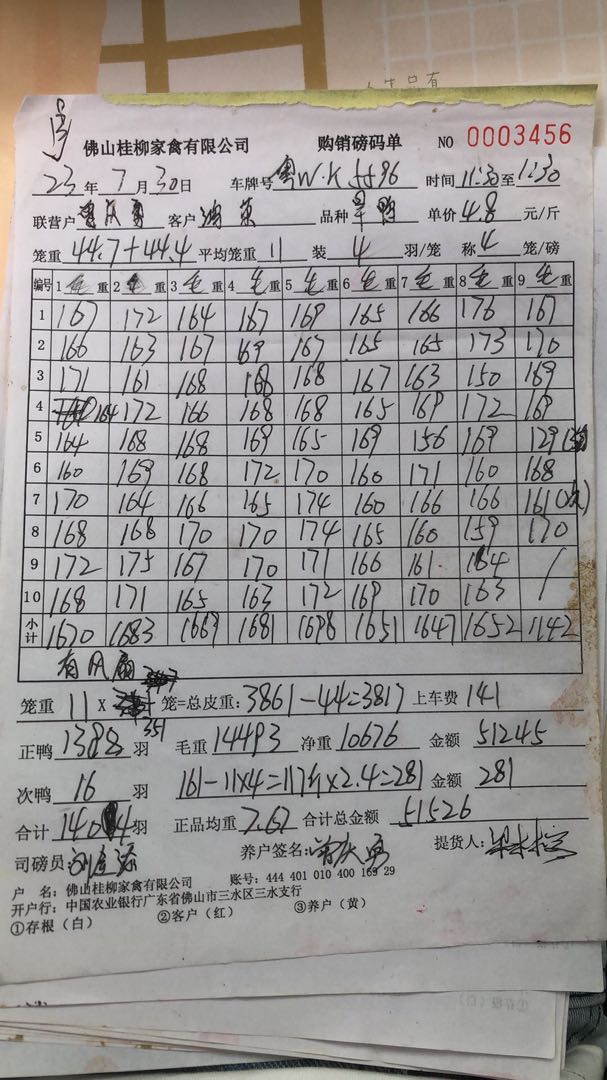 佛山桂柳家禽有限公司 购销磅码单 NO 0003456
23年7月30日 车牌号 粤W·K5596 时间 11:30至1:30
联营户 曾庆勇 客户 品种 单价 4.8 元/斤
笼重 44.7+44.4 平均笼重 11 装 4 羽/笼 称 4 笼/磅
编号 1 毛重 2 毛重 3 毛重 4 毛重 5 毛重 6 毛重 7 毛重 8 毛重 9 毛重
1 167 172 164 167 169 165 166 176 167
2 166 163 167 169 167 165 165 173 170
3 171 161 168 168 168 167 163 150 169
4 164 172 166 168 168 165 169 172 169
5 164 168 168 169 165 169 156 169 129
6 160 169 168 172 170 160 171 160 168
7 170 164 166 165 174 160 166 166 161(次)
8 168 168 170 170 174 165 160 159 170
9 172 175 167 170 171 166 161 164 /
10 168 171 165 163 172 169 170 163 /
小计 1670 1683 1669 1681 1698 1651 1647 1652 1142
有风扇
笼重 11 X 351 笼=总皮重: 3861-44=3817 上车费 141
正鸭 1388 羽 毛重 14493 净重 10676 金额 51245
次鸭 16 羽 161-11×4=117斤×2.4=281 金额 281
合计 1404 羽 正品均重 7.67 合计总金额 51526
司磅员: 养户签名: 曾庆勇 提货人:
户 名: 佛山桂柳家禽有限公司 账号: 444 401 010 400 169 29
开户行: 中国农业银行广东省佛山市三水区三水支行
①存根(白) ②客户(红) ③养户(黄)